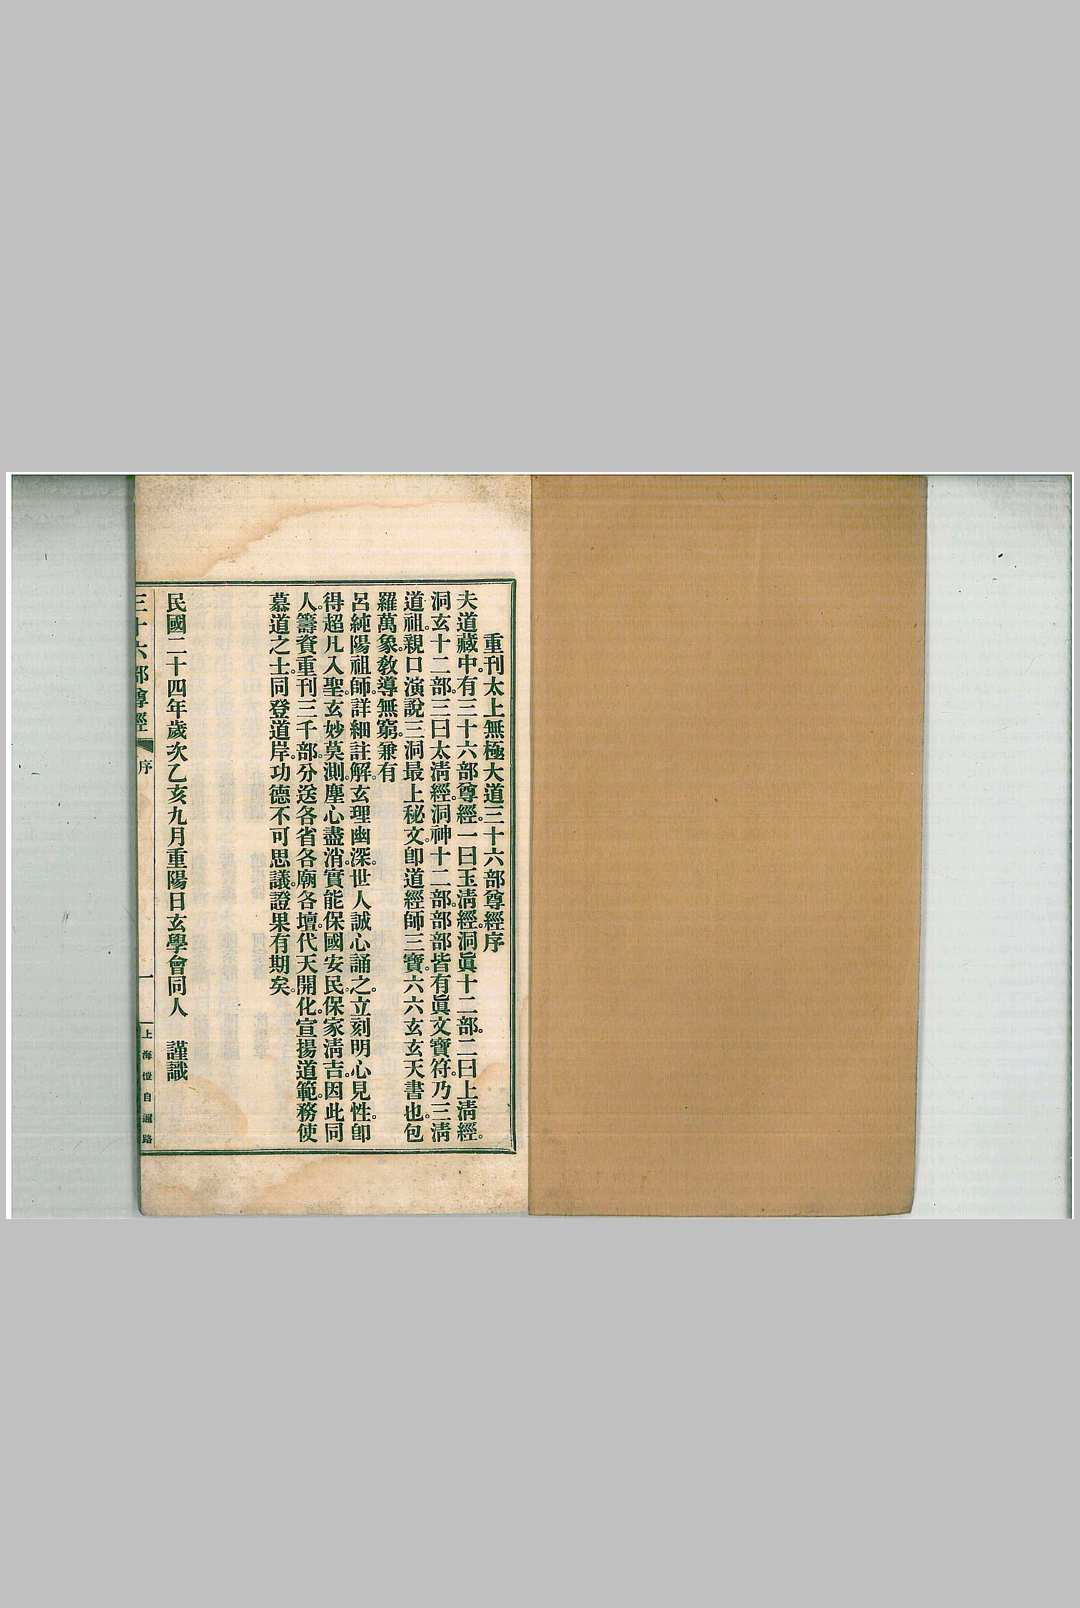 重刊太上無極大道三十六部尊經序
夫道藏中。有三十六部尊經。一曰玉淸經。洞眞十二部。二曰上淸經。
洞玄十二部。三曰太淸經。洞神十二部。部部皆有眞文寶符。乃三淸
道祖。親口演說。三洞最上秘文。卽道經師三寶。六六玄玄天書也。包
羅萬象。敎導無窮。兼有
呂純陽祖師。詳細註解。玄理幽深。世人誠心誦之。立刻明心見性。卽
得超凡入聖。玄妙莫測。塵心盡消。實能保國安民。保家淸吉。因此同
人。籌資重刊三千部。分送各省各廟各壇。代天開化。宣揚道範。務使
慕道之士。同登道岸。功德不可思議。證果有期矣。
民國二十四年歲次乙亥九月重陽日玄學會同人　謹識
三十六部尊經 序 一 上海愷自邇路